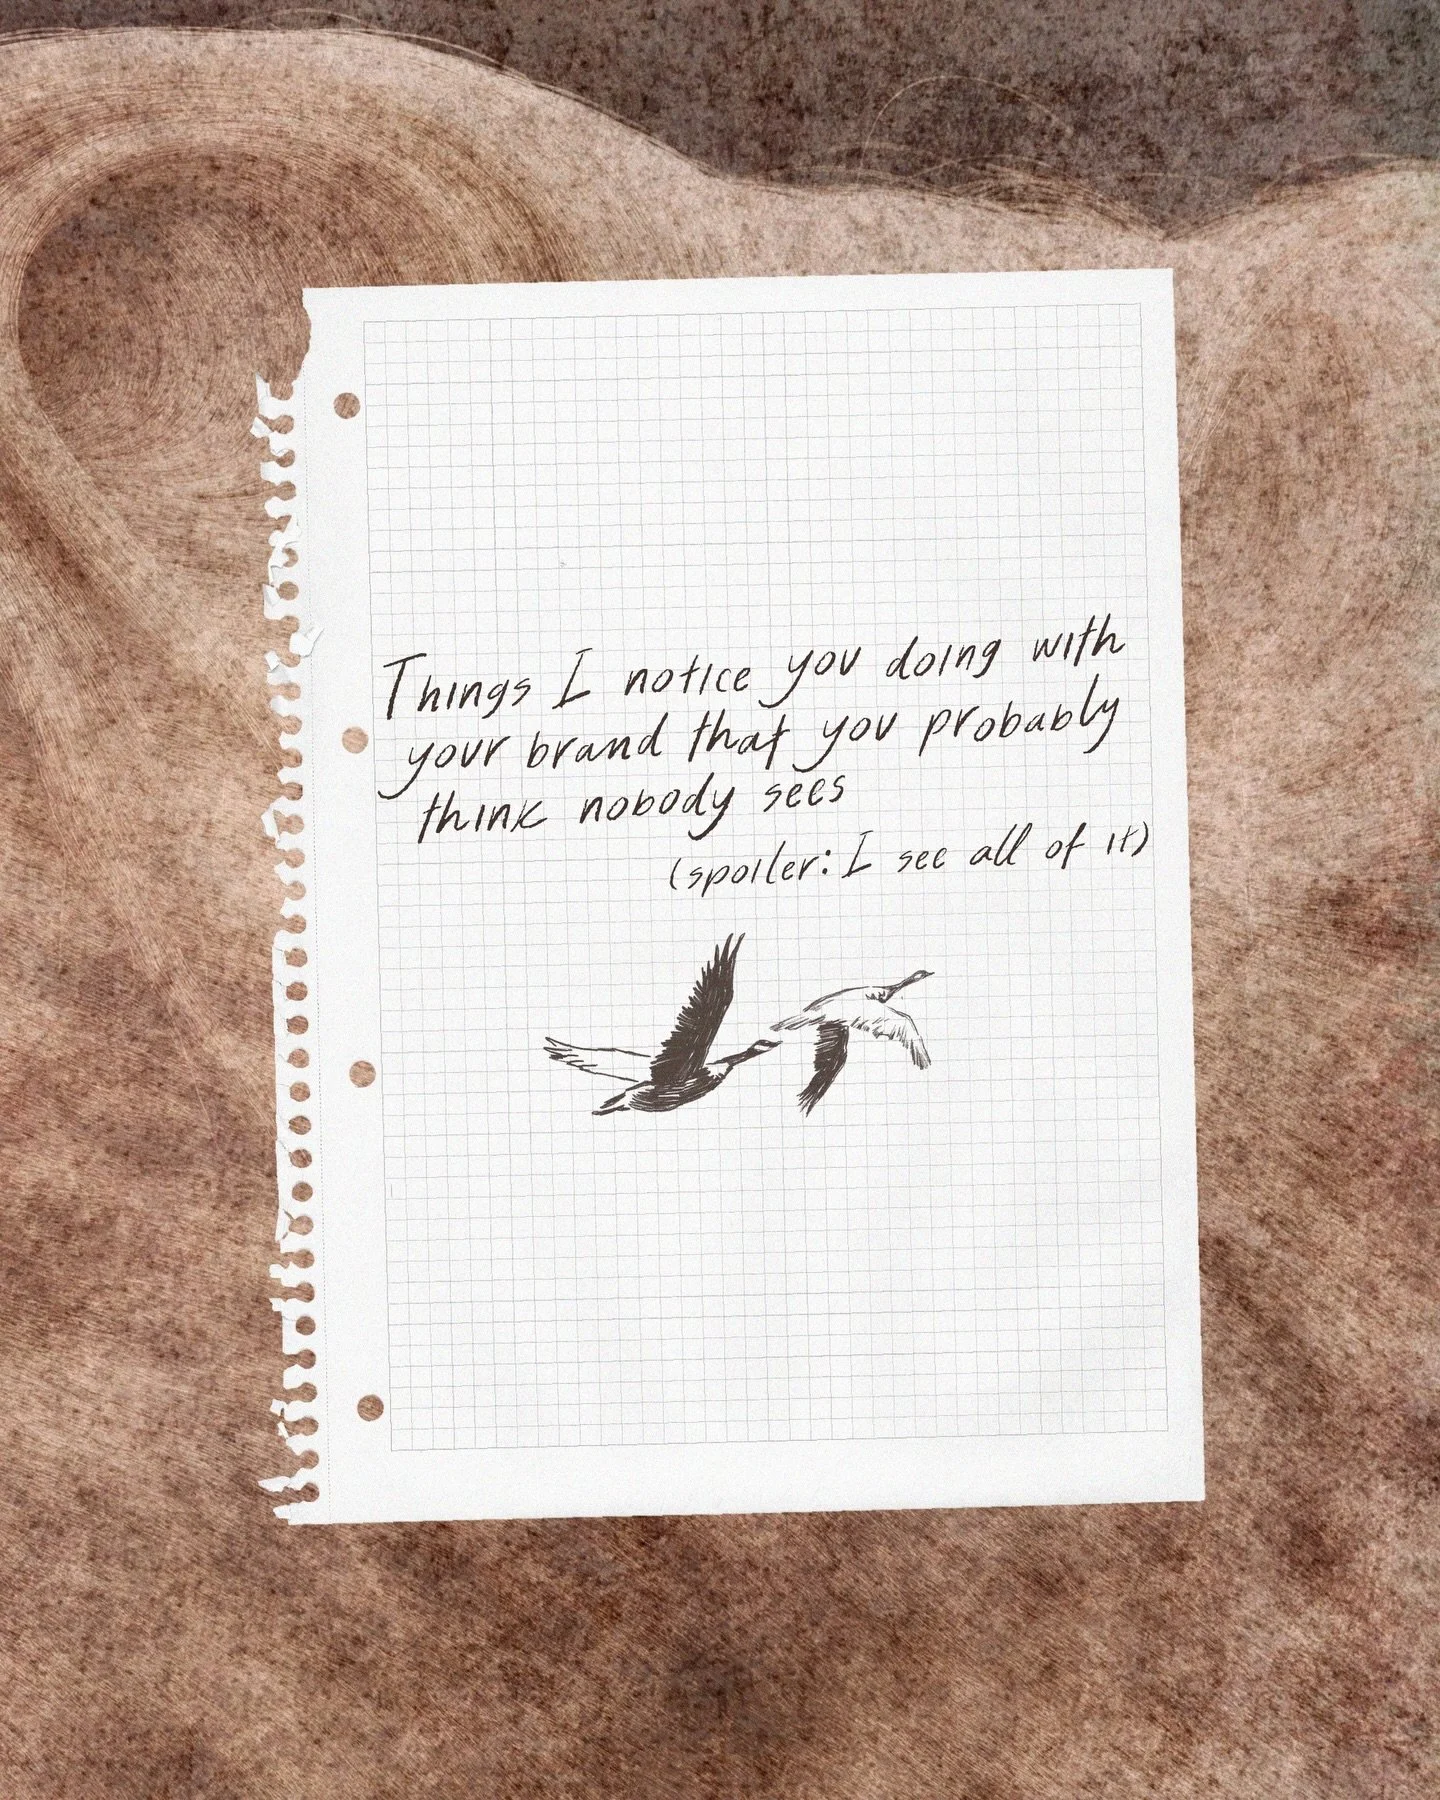 Things I notice you doing with
your brand that you probably
think nobody sees
(spoiler: I see all of it)